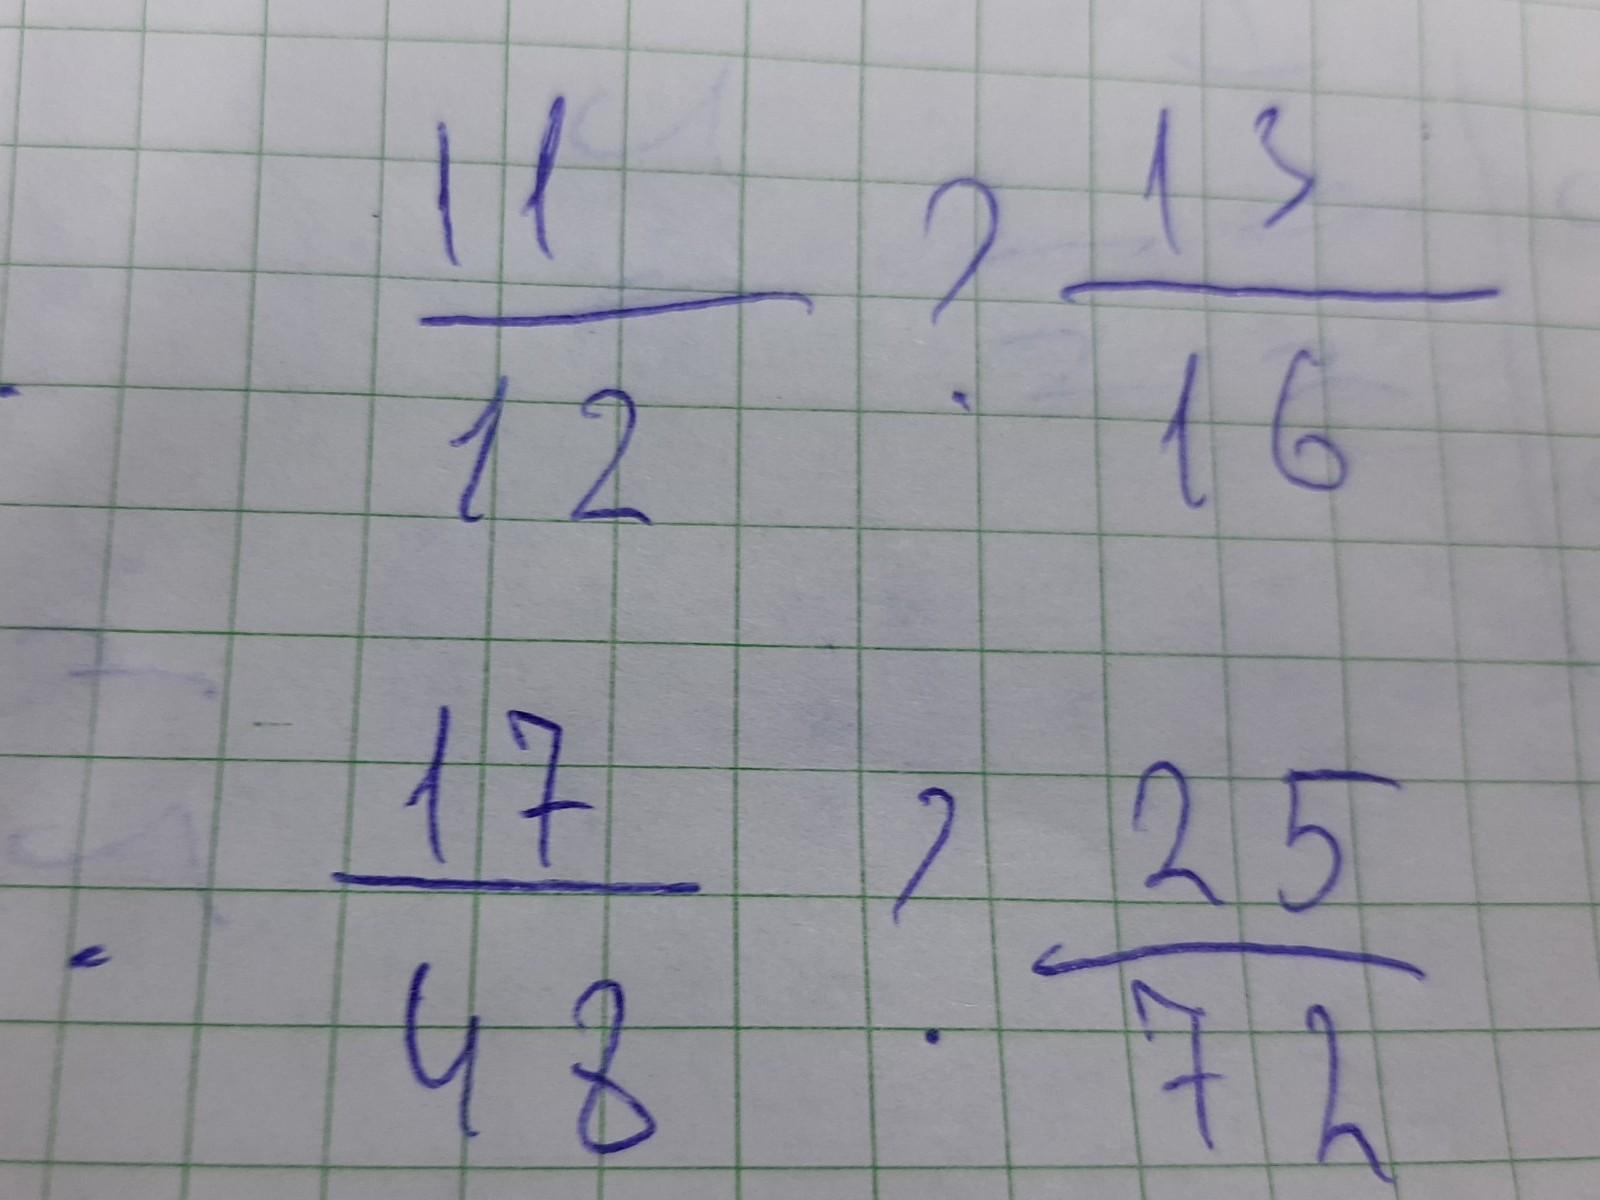 11/12 ? 13/16
17/48 ? 25/72